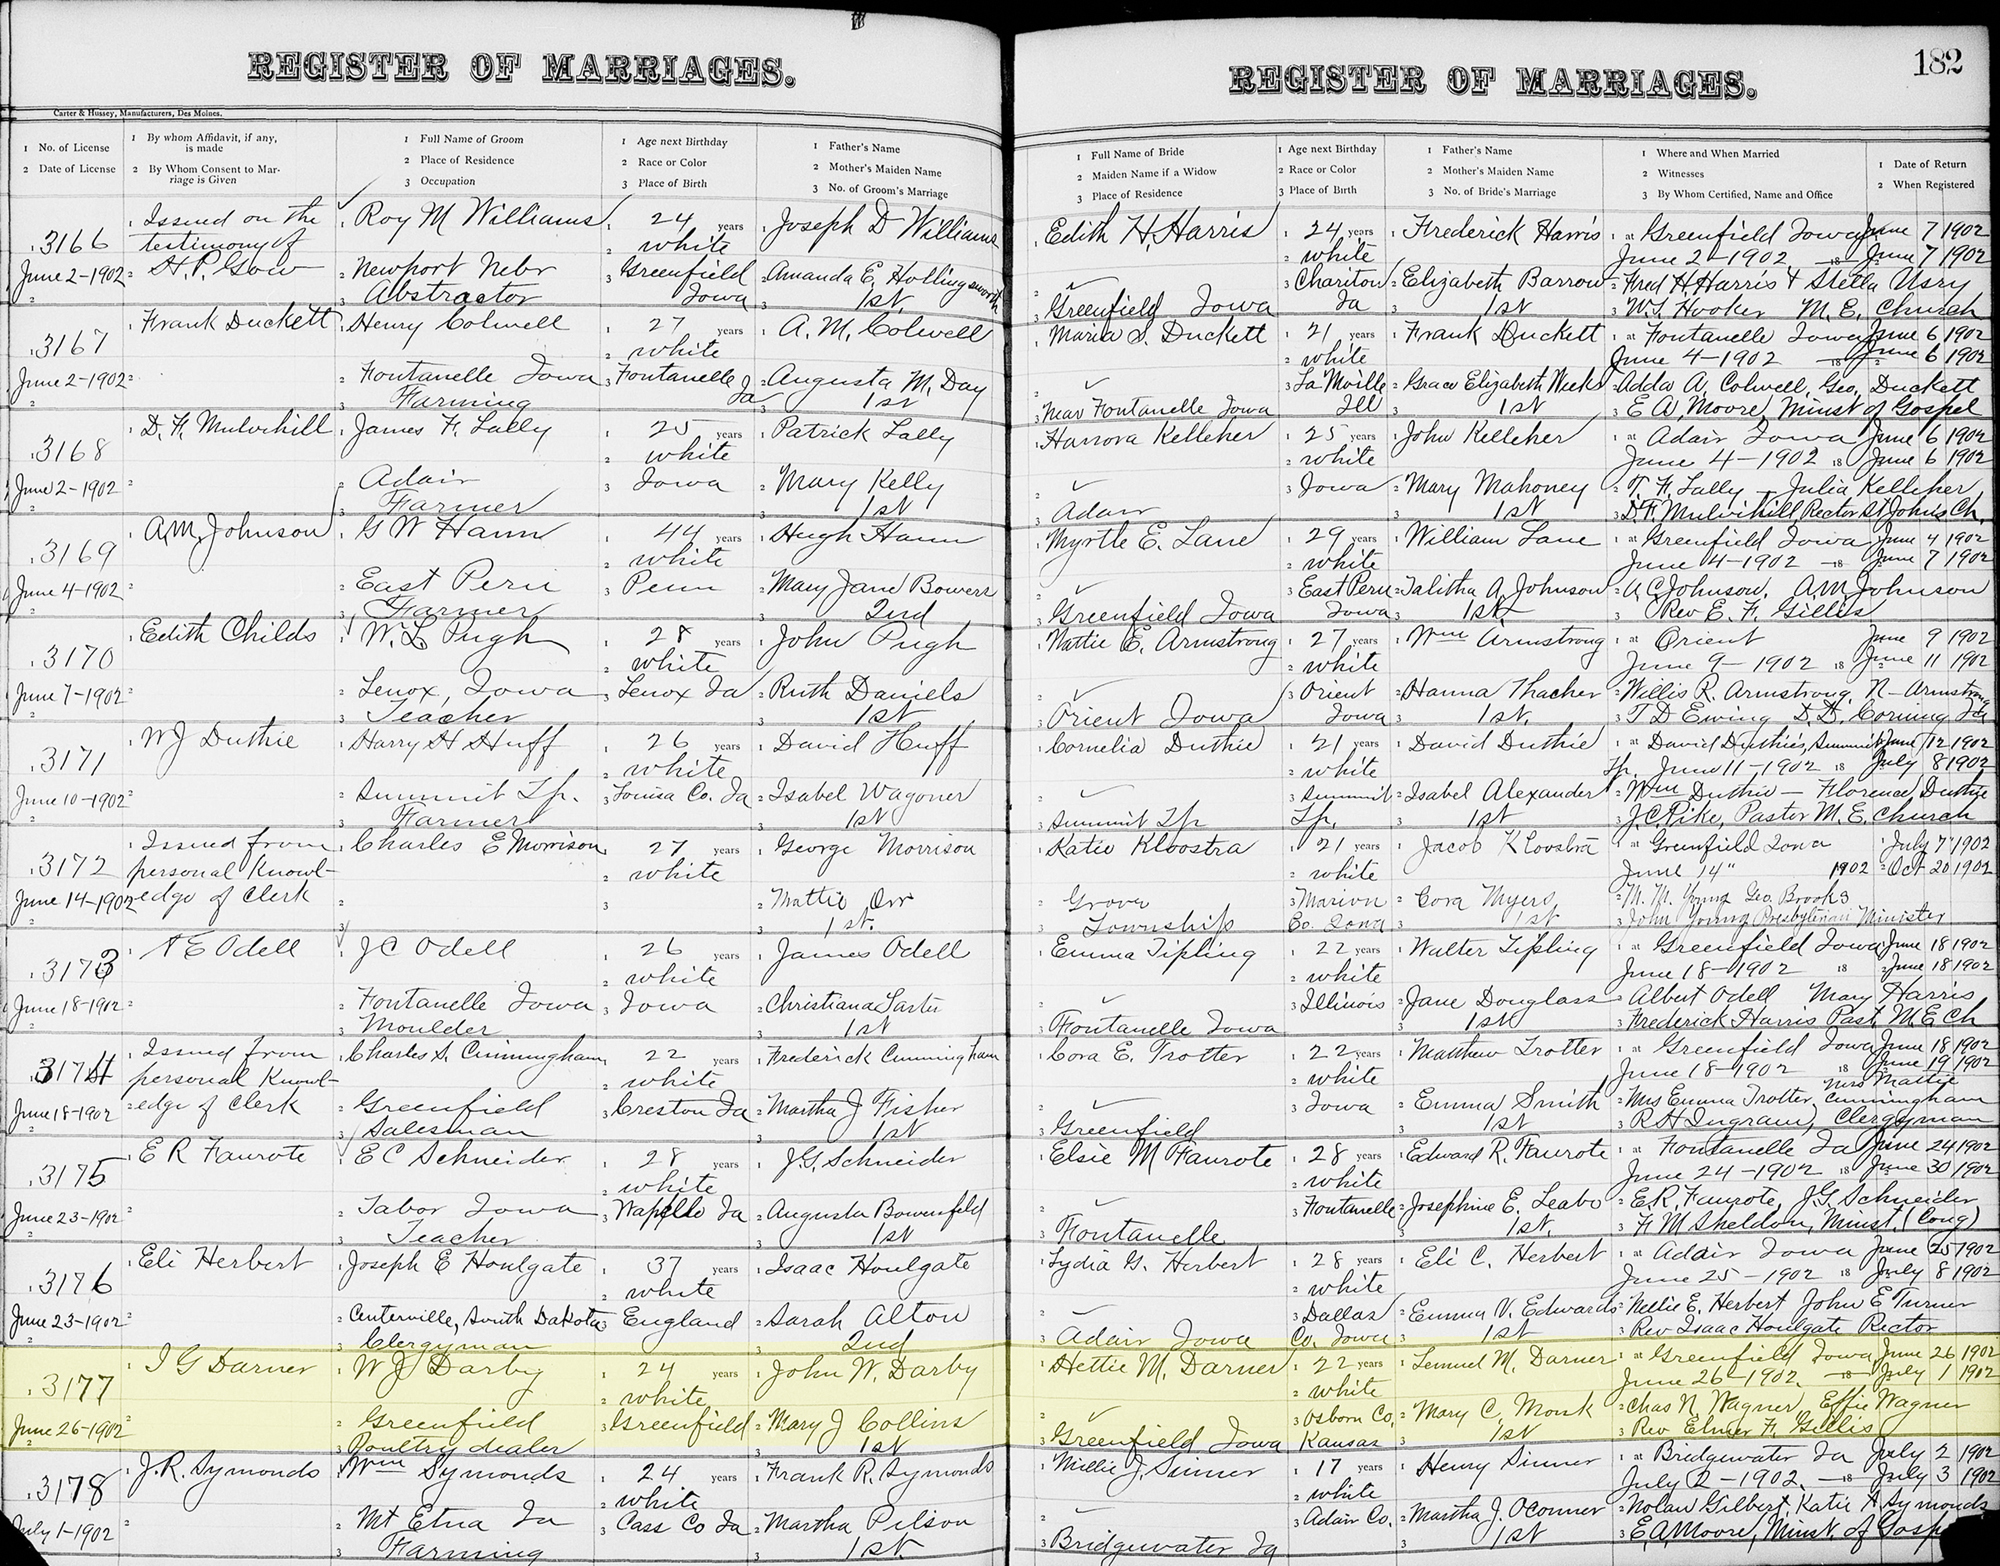 REGISTER OF MARRIAGES.
Carter & Hussey, Manufacturers, Des Moines.
1 No. of License
2 Date of License
1 By whom Affidavit, if any, is made
2 By Whom Consent to Marriage is Given
1 Full Name of Groom
2 Place of Residence
3 Occupation
1 Age next Birthday
2 Race or Color
3 Place of Birth
1 Father's Name
2 Mother's Maiden Name
3 No. of Groom's Marriage
REGISTER OF MARRIAGES.
182
1 Full Name of Bride
2 Maiden Name if a Widow
3 Place of Residence
1 Age next Birthday
2 Race or Color
3 Place of Birth
1 Father's Name
2 Mother's Maiden Name
3 No. of Bride's Marriage
1 Where and When Married
2 Witnesses
3 By Whom Certified, Name and Office
1 Date of Return
2 When Registered
3166 Issued on the Roy M Williams 24 years Joseph D Williams Edith H. Harris 24 years Frederick Harris at Greenfield Iowa June 7 1902
testimony of white white June 2-1902 June 7 1902
June 2-1902 H. P. Gow Newport Nebr Greenfield Amanda E. Hollingsworth Chariton Elizabeth Barrow Fred H. Harris & Stella Usry
Abstractor Iowa 1st Greenfield Iowa Ia 1st W.S. Hooker M. E. Church
3167 Frank Duckett Henry Colwell 27 years A. M. Colwell Maria S. Duckett 21 years Frank Duckett at Fontanelle Iowa June 6 1902
white white June 4-1902 June 6 1902
June 2-1902 Fontanelle Iowa Fontanelle Ia Augusta M. Day La Moille Grace Elizabeth Weeks Adda A. Colwell, Geo. Duckett
Farming 1st Near Fontanelle Iowa Ill 1st E A Moore, Minst of Gospel
3168 D. F. Mulvihill James F. Lally 25 years Patrick Lally Hanora Kelleher 25 years John Kelleher at Adair Iowa June 6 1902
white white June 4-1902 18 June 6 1902
June 2-1902 Adair Iowa Mary Kelly Iowa Mary Mahoney T. F. Lally - Julia Kelleher
Farmer 1st Adair 1st D. F. Mulvihill Rector St Johns Ch.
3169 A. M. Johnson G W Hann 44 years Hugh Hann Myrtle E. Lane 29 years William Lane at Greenfield Iowa June 4 1902
white white June 4-1902 18 June 7 1902
June 4-1902 East Peru Penn Mary Jane Bowers East Peru Talitha A. Johnson A. C. Johnson, A M Johnson
Farmer 2nd Greenfield Iowa Iowa 1st Rev E. F. Gillis
3170 Edith Childs W. L Pugh 28 years John Pugh Mattie E. Armstrong 27 years Wm Armstrong at Orient June 9 1902
white white June 9-1902 18 June 11 1902
June 7-1902 Lenox, Iowa Lenox Ia Ruth Daniels Orient Hanna Thacher Willis R. Armstrong, N- Armstrong
Teacher 1st Orient Iowa Iowa 1st T D Ewing D.D. Corning Ia
3171 W J Duthie Harry H Huff 26 years David Huff Cornelia Duthie 21 years David Duthie at David Duthie's, Summit June 12 1902
white white Tp. June 11-1902 18 July 8 1902
June 10-1902 Summit Tp. Louisa Co. Ia Isabel Wagoner Summit Isabel Alexander Wm Duthie - Florence Duthie
Farmer 1st Summit Tp Tp. 1st J. C. Pike, Pastor M. E. Church
3172 Issued from Charles E Morrison 27 years George Morrison Katie Kloostra 21 years Jacob Kloostra at Greenfield Iowa July 7 1902
personal Knowl- white white June 14" 1902 Oct 20 1902
June 14-1902 edge of Clerk Mattie Orr Grove Marion Cora Myers M. M. Young Geo. Brooks
1st. Township Co. Iowa 1st John Young Presbyterian Minister
3173 A E Odell J C Odell 26 years James Odell Emma Tipling 22 years Walter Tipling at Greenfield Iowa June 18 1902
white white June 18-1902 18 June 18 1902
June 18-1902 Fontanelle Iowa Iowa Christiana Illinois Jane Douglass Albert Odell Mary Harris
Moulder 1st Fontanelle Iowa 1st Frederick Harris Past M E Ch
3174 Issued from Charles S. Cunningham 22 years Frederick Cunningham Cora E. Trotter 22 years Matthew Trotter at Greenfield Iowa June 18 1902
personal Knowl- white white June 18-1902 18 June 19 1902
June 18-1902 edge of Clerk Greenfield Creston Ia Martha J Fisher Iowa Emma Smith Mrs Emma Trotter, Mrs Mattie Cunningham
Salesman 1st Greenfield 1st R H Ingram, Clergyman
3175 E R Faurote E C Schneider 28 years J G. Schneider Elsie M Faurote 28 years Edward R. Faurote at Fontanelle Ia June 24 1902
white white June 24-1902 18 June 30 1902
June 23-1902 Tabor Iowa Wapello Ia Augusta Fontanelle Josephine E. Leabo E. R. Faurote, J. G. Schneider
Teacher 1st Fontanelle 1st. F. M Sheldon, Minst. (Cong)
3176 Eli Herbert Joseph E Houlgate 37 years Isaac Houlgate Lydia G. Herbert 28 years Eli C. Herbert at Adair Iowa June 25 1902
white white June 25-1902 18 July 8 1902
June 23-1902 Centerville, South Dakota England Sarah Alton Dallas Emma V. Edwards Nellie E. Herbert John E Turner
Clergyman 2nd Adair Iowa Co. Iowa 1st Rev Isaac Houlgate Rector
3177 I G Darner W J Darby 24 years John W. Darby Hettie M. Darner 22 years Lemuel M. Darner at Greenfield Iowa June 26 1902
white white June 26-1902. 18 July 1 1902
June 26-1902 Greenfield Greenfield Mary J Collins Osborn Co, Mary C. Monk Chas N Wagner, Effie Wagner
Poultry dealer 1st Greenfield Iowa Kansas 1st Rev Elmer F. Gillis
3178 J. R. Symonds Wm Symonds 24 years Frank R. Symonds Millie J. Sinner 17 years Henry Sinner at Bridgewater Ia July 2 1902
white white July 2-1902. 18 July 3 1902
July 1-1902 Mt Etna Ia Cass Co Ia Martha Pilson Adair Co. Martha J. OConner Nolan Gilbert, Katie A Symonds
Farming 1st. Bridgewater Ia 1st E. A. Moore, Minst. of Gosp